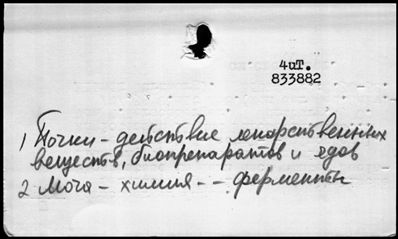 4иТ.
833882
1 Почки - действие лекарственных
веществ, биопрепаратов и ядов
2 Моча - химия - - ферменты